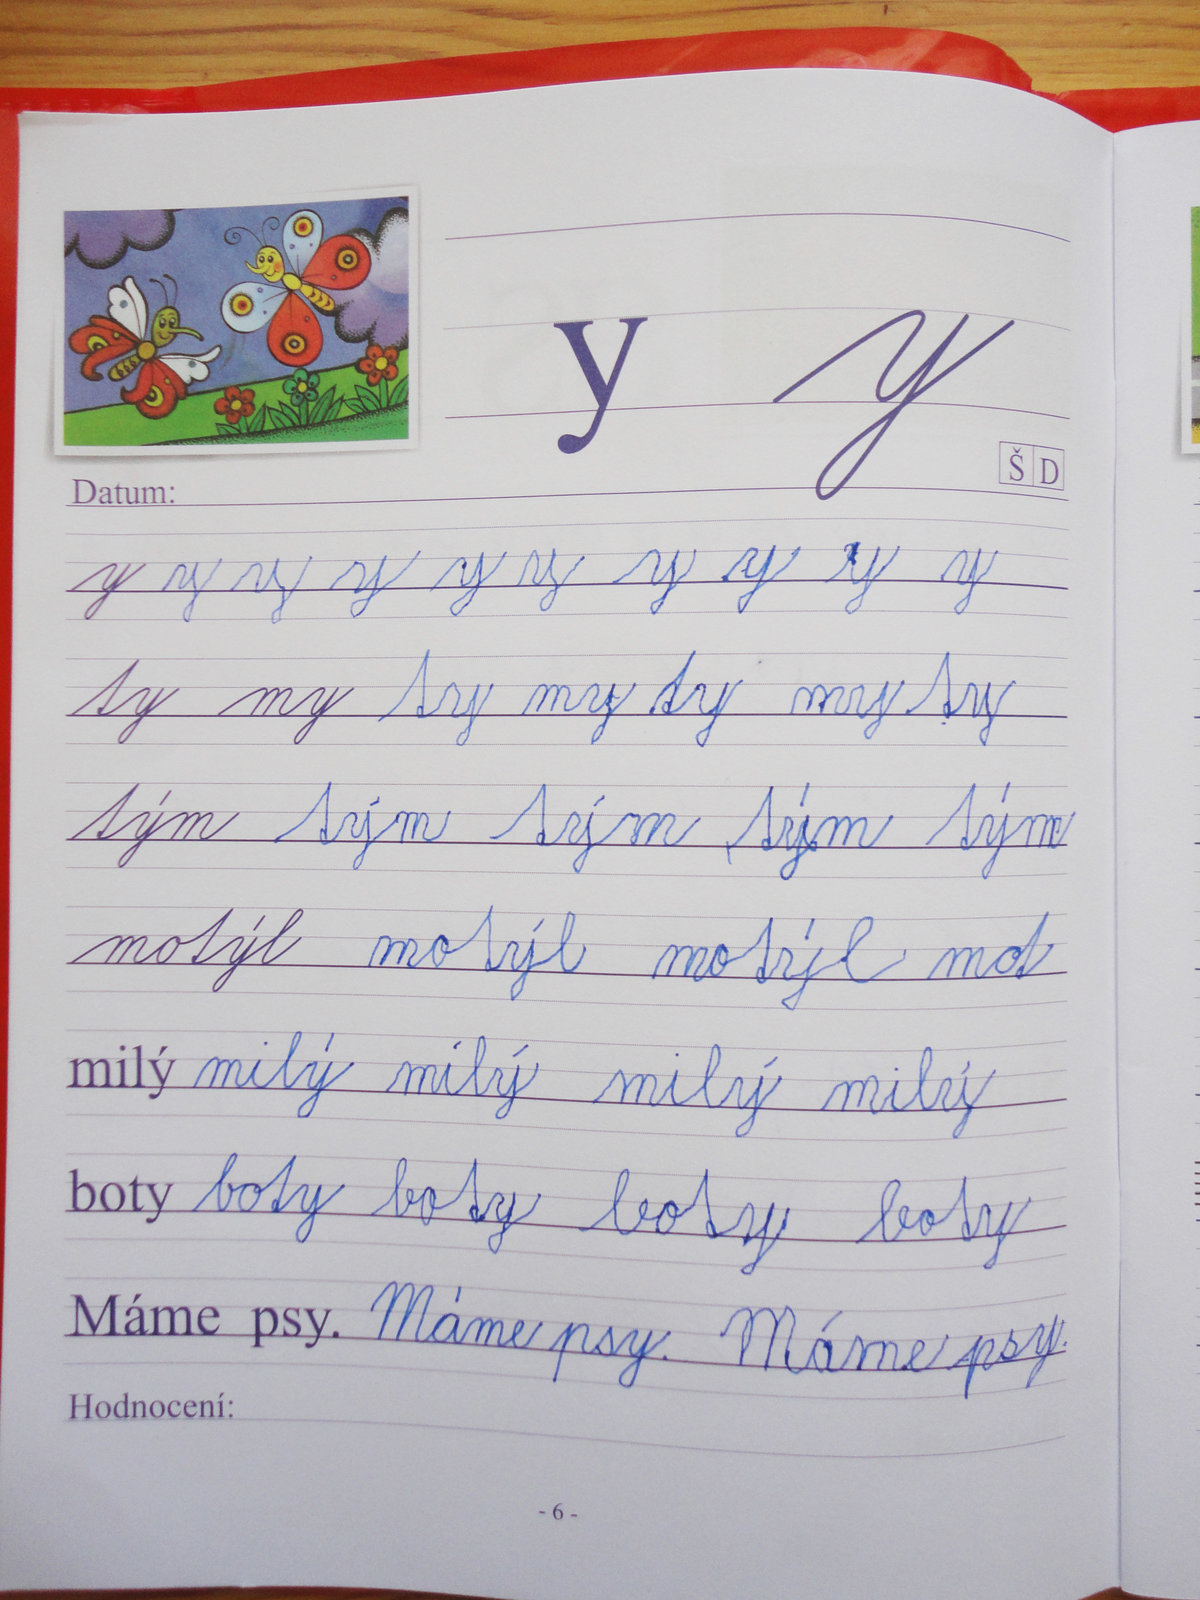 y y
Š D
Datum:
y y y y y y y y y y
ty my ty my ty my ty
tým tým tým tým tým
motýl motýl motýl mot
milý milý milý milý milý
boty boty boty boty boty
Máme psy. Máme psy. Máme psy.
Hodnocení:
- 6 -